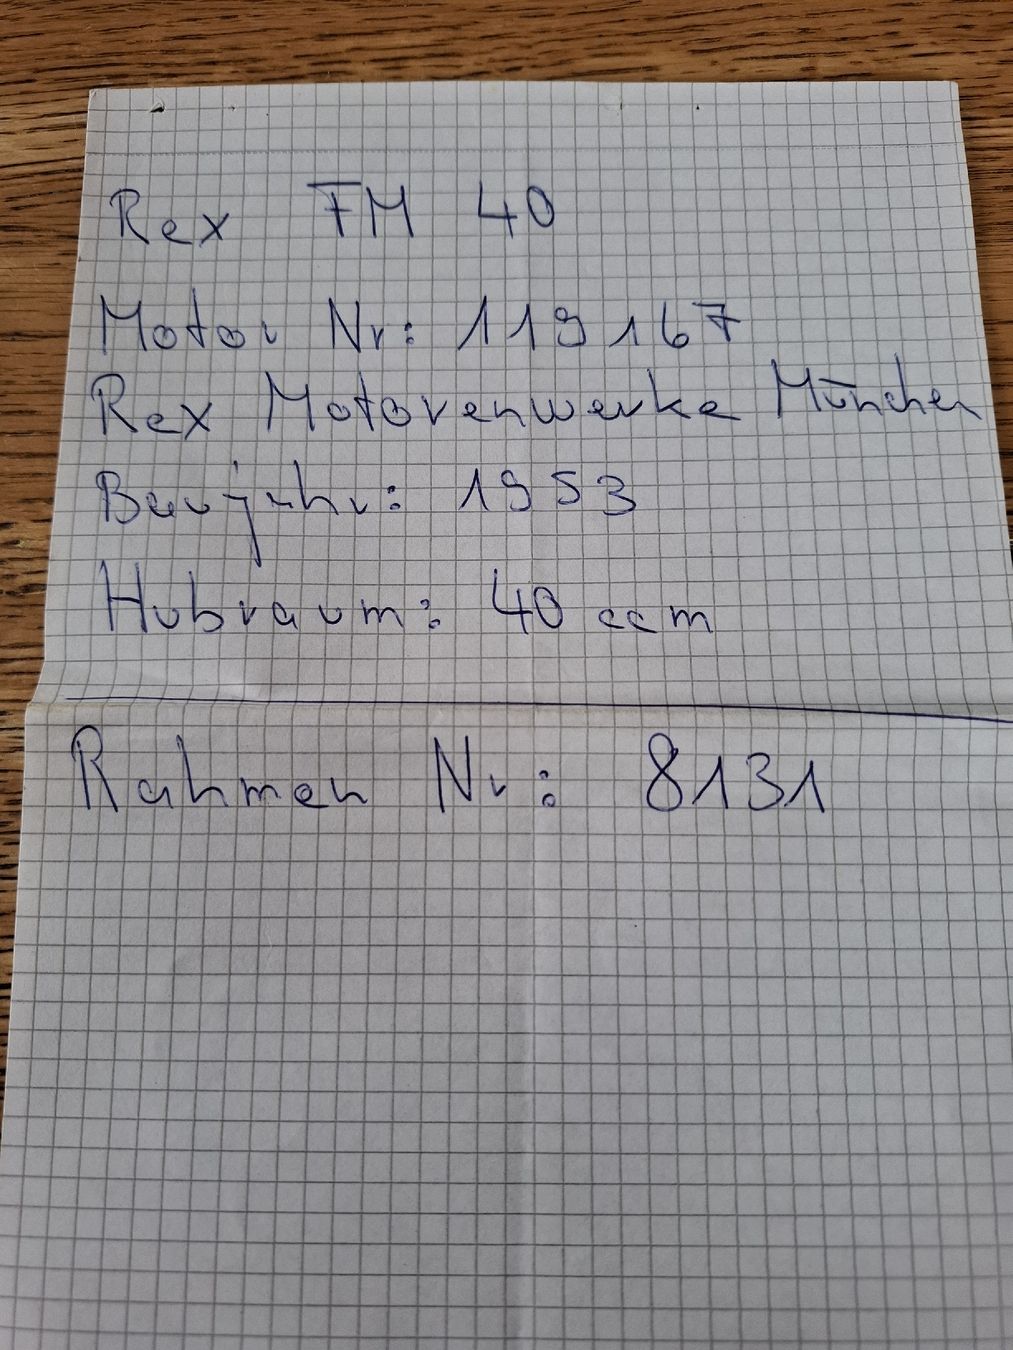 Rex FM 40
Motor Nr: 119167
Rex Motorenwerke München
Baujahr: 1953
Hubraum: 40 ccm
Rahmen Nr: 8131